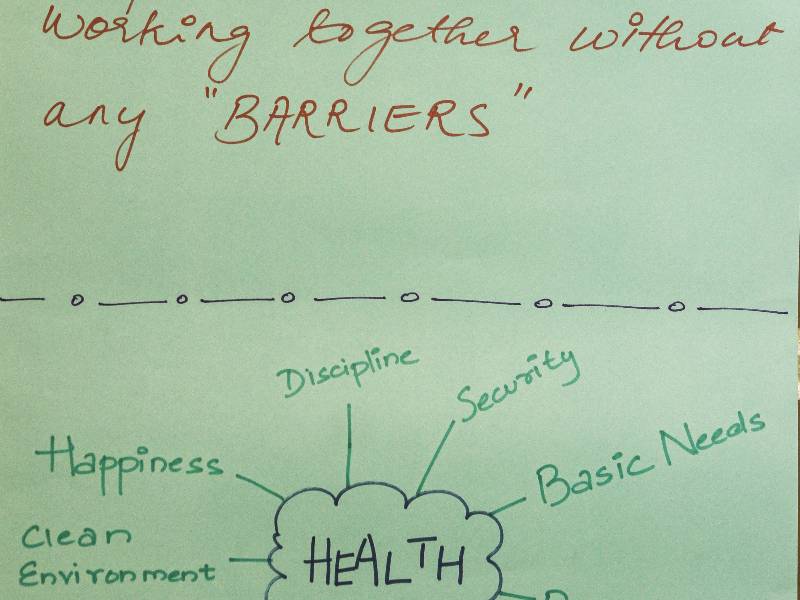 Working together without
any "BARRIERS"
Discipline
Security
Happiness
Basic Needs
Clean
Environment
HEALTH